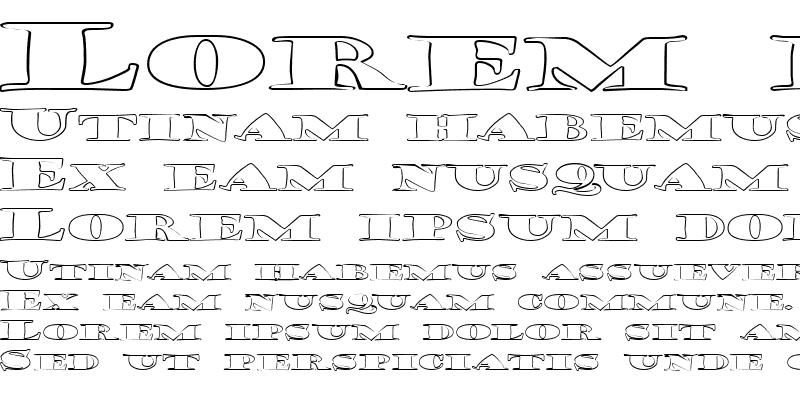 Lorem
Utinam habemus
Ex eam nusquam
Lorem ipsum dol
Utinam habemus assuever
Ex eam nusquam commune.
Lorem ipsum dolor sit am
Sed ut perspiciatis unde